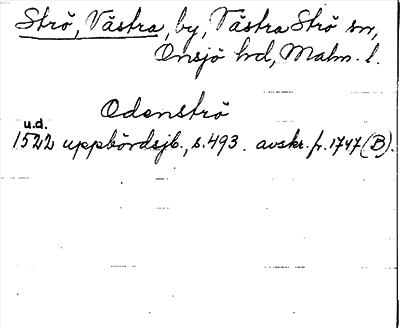 Strö, Västra, by, Västra Strö sn,
Onsjö hd, Malm. l.
Odenströ
u.d.
1522 uppbördsjb., s. 493. avskr. fr. 1747 (B).